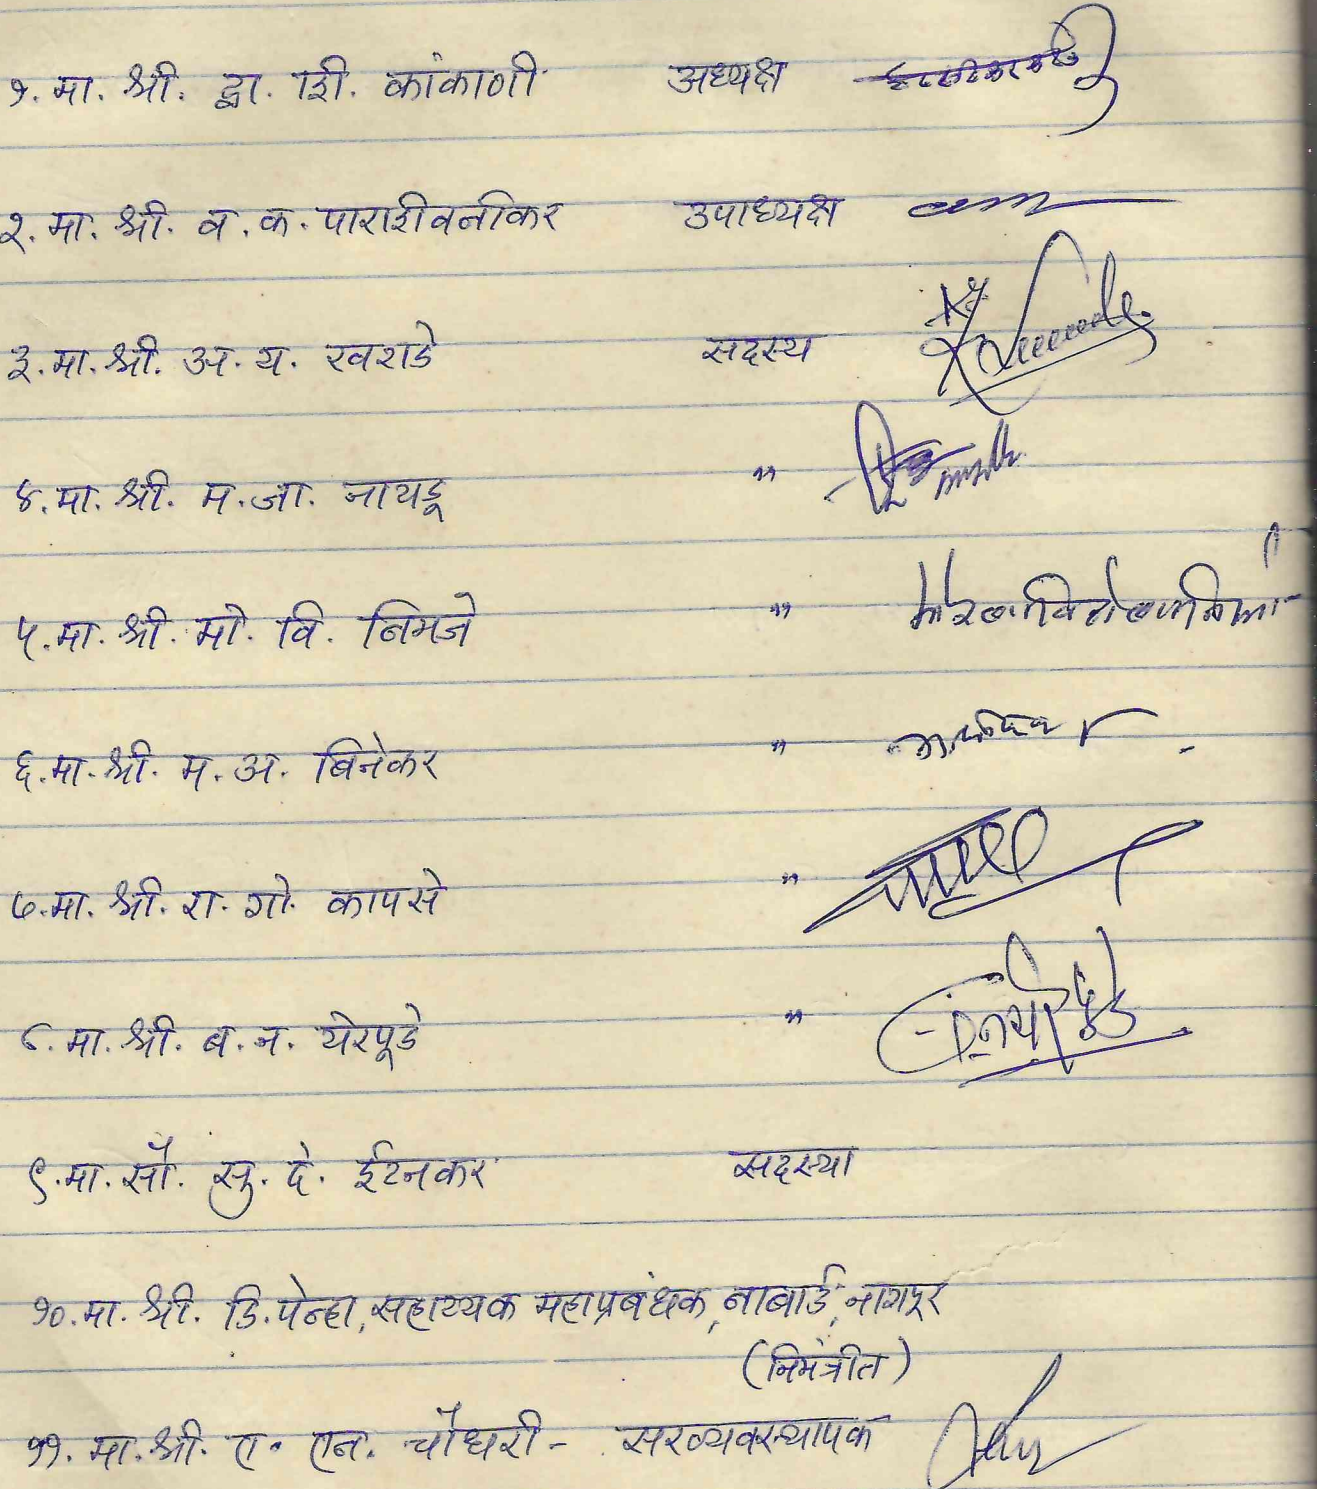 १. मा. श्री. द्वा. शि. कांकाणी अध्यक्ष
२. मा. श्री. व. क. पाराशीवनीकर उपाध्यक्ष
३. मा. श्री. अ. य. खवाडे सदस्य
४. मा. श्री. म. जा. नायडू "
५. मा. श्री. मो. वि. निमजे "
६. मा. श्री. म. अ. बिनेकर "
७. मा. श्री. रा. गो. कापसे "
८. मा. श्री. ब. न. येरपूडे "
९. मा. सौ. सु. दे. ईटनकर सदस्या
१०. मा. श्री. डि. पेन्हा, सहाय्यक महाप्रबंधक, नाबार्ड, नागपूर
(निमंत्रीत)
११. मा. श्री. ए. एन. चौधरी - सरव्यवस्थापक